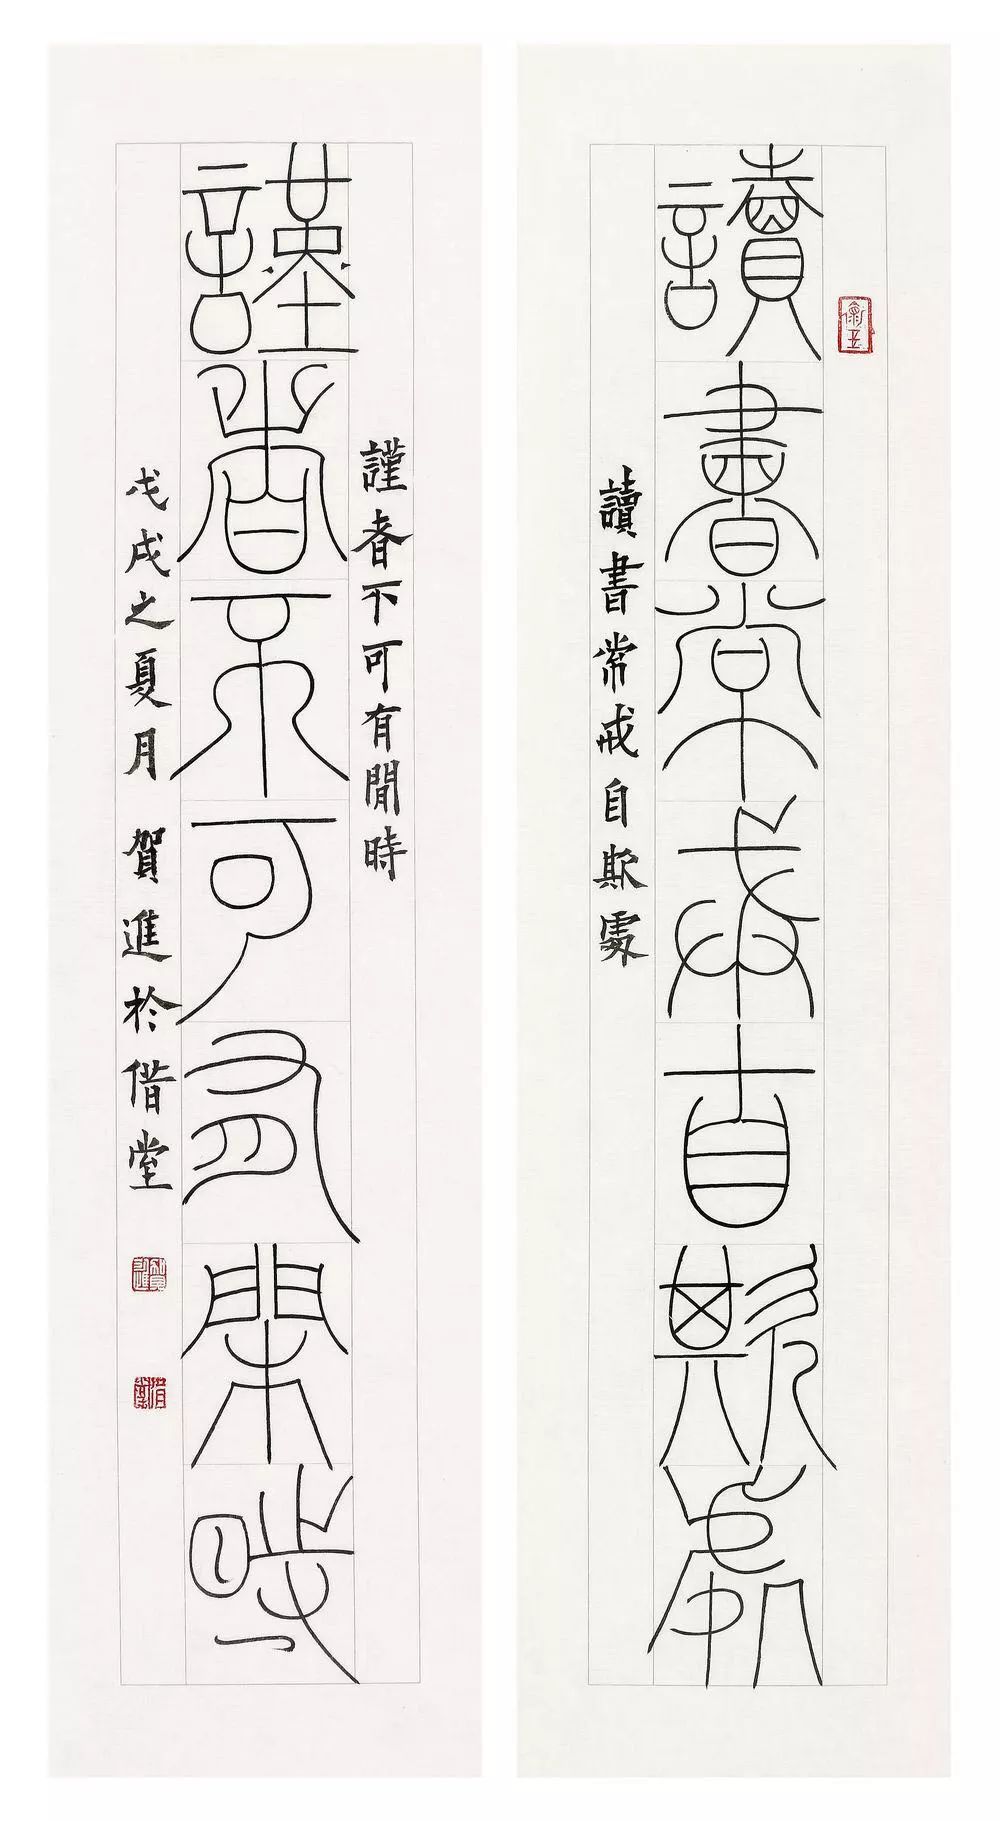 讀書常戒自欺處
讀書常戒自欺處
謹者不可有閒時
謹者不可有閒時
戊戌之夏月 賀進於借堂